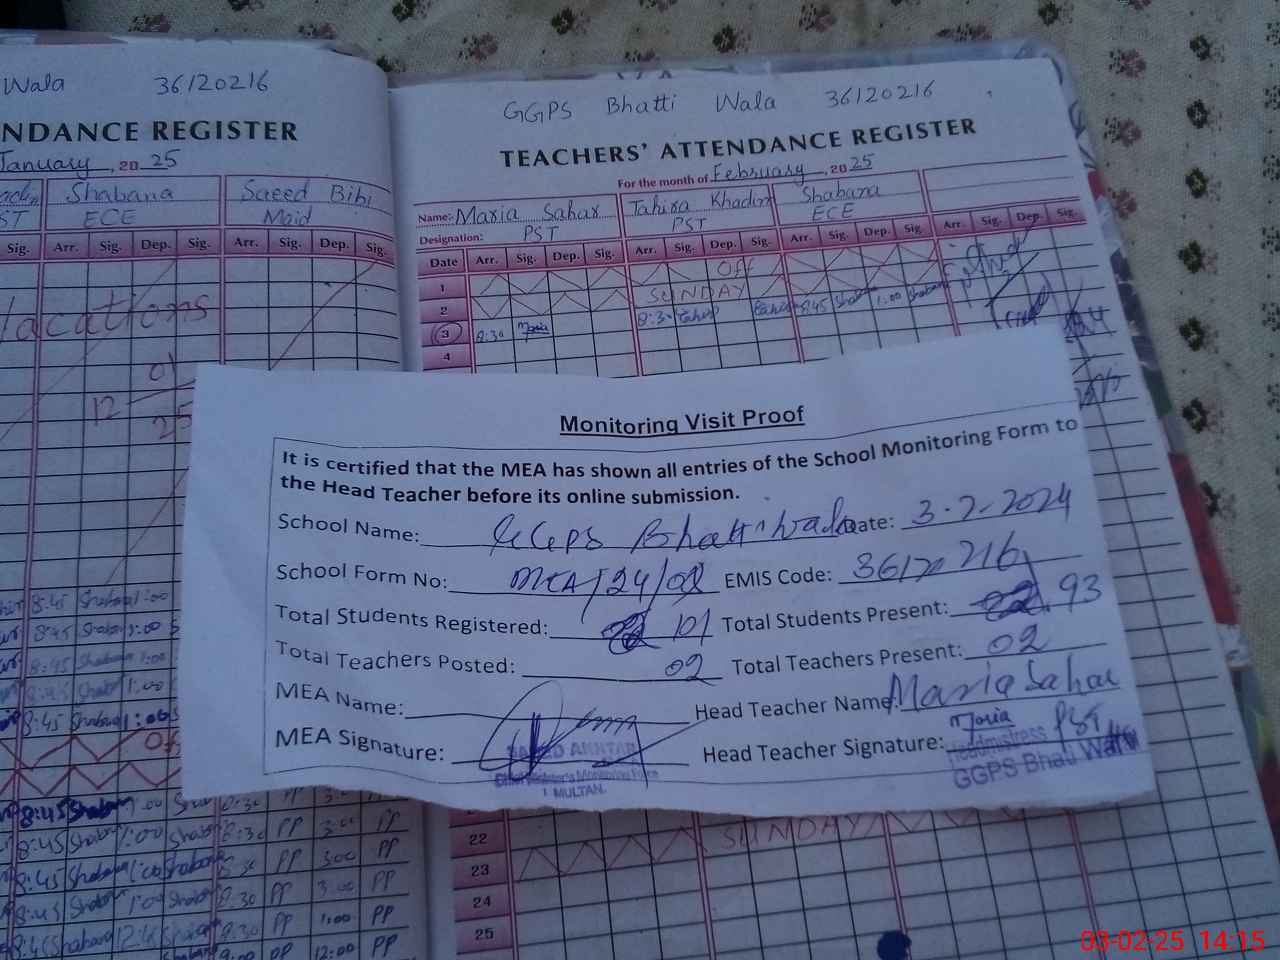 Wala 36120216
NDANCE REGISTER
January, 20 25
Shabana Saeed Bibi
ST ECE Maid
Sig. Arr. Sig. Dep. Sig. Arr. Sig. Dep. Sig.
acations
01
12
25
GGPS Bhatti Wala 36120216
TEACHERS' ATTENDANCE REGISTER
For the month of February, 20 25
Name: Maria Sahar Tahira Khadim Shabana
Designation: PST PST ECE
Date Arr. Sig. Dep. Sig. Arr. Sig. Dep. Sig. Arr. Sig. Dep. Sig. Arr. Sig. Dep. Sig.
1 Off
2 SUNDAY
3 8:30 Maria 8:30 8:45 Shabana 1:00 Shabana
4
Monitoring Visit Proof
It is certified that the MEA has shown all entries of the School Monitoring Form to
the Head Teacher before its online submission.
School Name: GGPS Bhatti Wala Date: 3-2-2024
School Form No: MEA/24/02 EMIS Code: 36120216
Total Students Registered: 101 Total Students Present: 93
Total Teachers Posted: 02 Total Teachers Present: 02
MEA Name: Head Teacher Name: Maria Sahar
MEA Signature: Head Teacher Signature: Maria PST
Headmistress
GGPS Bhati Wala
MULTAN.
8:45 Shabana 1:00
8:45 Shabana 1:00
8:45 Shabana 1:00
8:45 Shabana 1:00
8:45 Shabana 1:00
8:45 Shabana 1:00 8:30 PP 3:00 PP
8:45 Shabana 1:00 Shabana 8:30 PP 3:00 PP
8:45 Shabana 1:00 Shabana 8:30 PP 3:00 PP
8:45 Shabana 1:00 Shabana 8:30 PP 3:00 PP
Shabana 8:30 PP 1:00 PP
9:00 PP 12:00 PP
22
23 SUNDAY
24
25
03-02-25 14:15